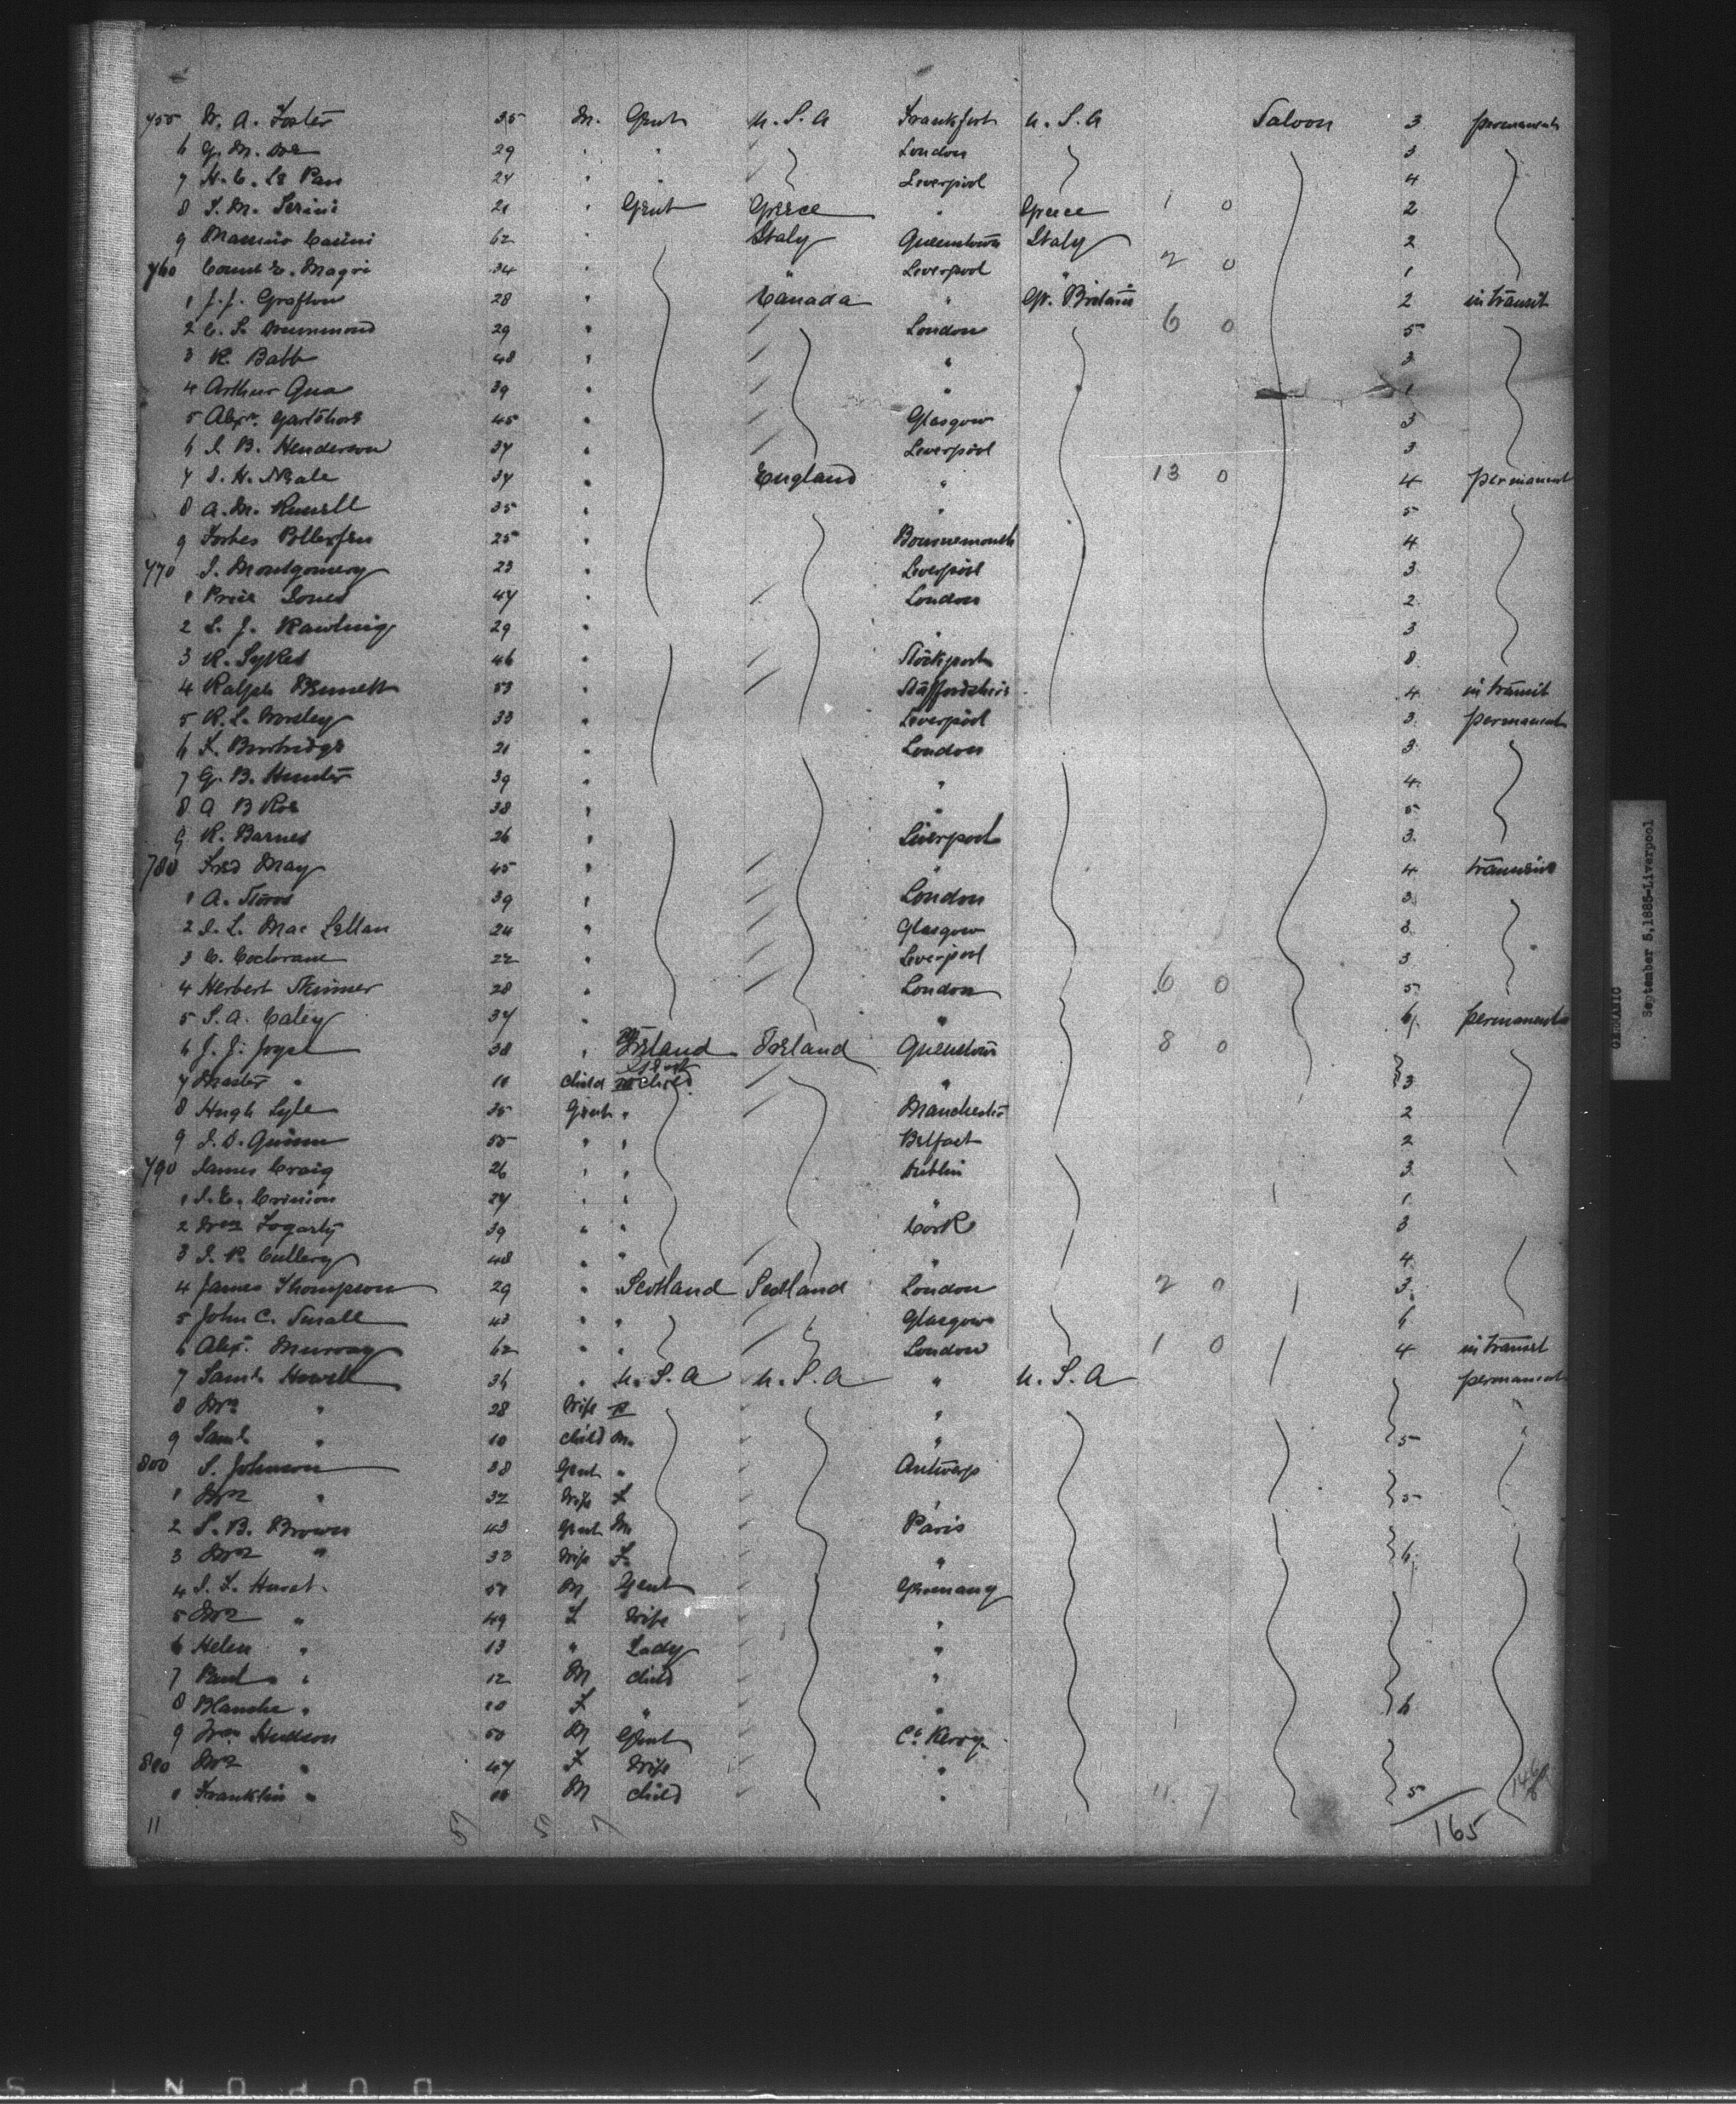 755 W. A. Foster 35 M. Gent U.S.A Frankfort U.S.A Saloon 3 permanent
6 G. M. 29 " " London 3
7 H. C. Le Pan 24 " " Liverpool 4
8 S. M. Serini 21 " Gent Greece " Greece 1 0 2
9 Massimo Casini 62 " Italy Queenstown Italy 2
760 Count E. Magri 34 " " Liverpool " 2 0 1
1 J. J. Grafton 28 " Canada " Gt. Britain 2 in transit
2 C. S. Drummond 29 " London 6 0 5
3 R. Babb 48 " " 3
4 Arthur Qua 39 " " 1
5 Alexr. Gartshore 45 " Glasgow 3
6 J. B. Henderson 37 " Liverpool 3
7 J. H. Neale 37 " England " 13 0 4 permanent
8 A. M. Russell 35 " " 5
9 Forbes Pollexfen 25 " Bournemouth 4
770 J. Montgomery 23 " Liverpool 3
1 Price Jones 47 " London 2
2 S. J. Rawlings 29 " " 3
3 R. Sykes 46 " Stockport 8
4 Ralph Bennett 53 " Staffordshire 4 in transit
5 R. L. Worsley 33 " Liverpool 3 permanent
6 F. Burbridge 21 " London 3
7 G. B. Hunter 39 " " 4
8 A B Roe 38 " " 5
9 R. Barnes 26 " Liverpool 3
780 Fred May 45 " " 4 transit
1 A. Storrs 39 " London 3
2 J. L. Mac Lellan 24 " Glasgow 3
3 C. Cochrane 22 " Liverpool 3
4 Herbert Skinner 28 " London 6 0 5
5 S. A. Caley 37 " " 4 permanent
6 J. J. Joyce 38 " Ireland Ireland Queenstown 8 0
7 Master " 10 child child " 3
8 Hugh Lyle 35 Gent " Manchester 2
9 J. D. Gunn 55 " " Belfast 2
790 James Craig 26 " " Dublin 3
1 J. E. Crinion 27 " " " 1
2 Wm Fogarty 39 " " Cork 3
3 J. P. Cullery 48 " " 4
4 James Thompson 29 " Scotland Scotland London 2 0 3
5 John C. Small 43 " " Glasgow 6
6 Alexr. Murray 62 " " London 1 0 4 in transit
7 Saml. Howell 36 " U.S.A U.S.A " U.S.A permanent
8 Mrs " 28 Wife F "
9 Saml. " 10 child M. " 5
800 S. Johnson 38 Gent " Antwerp
1 Mrs " 32 Wife F 5
2 S. B. Brown 43 Gent M Paris
3 Mrs " 33 Wife F. " 6
4 J. F. Hurst 51 M Gent Germany
5 Mrs " 49 F Wife "
6 Helen " 13 " Lady "
7 Paul " 12 M child "
8 Blanche " 10 F " " 6
9 Wm Hudson 50 M Gent Co. Kerry
810 Mrs " 47 F Wife "
1 Franklin " 10 M child " 11 7 5
11 57 5 7 165
GERMANIC
September 5, 1885-Liverpool